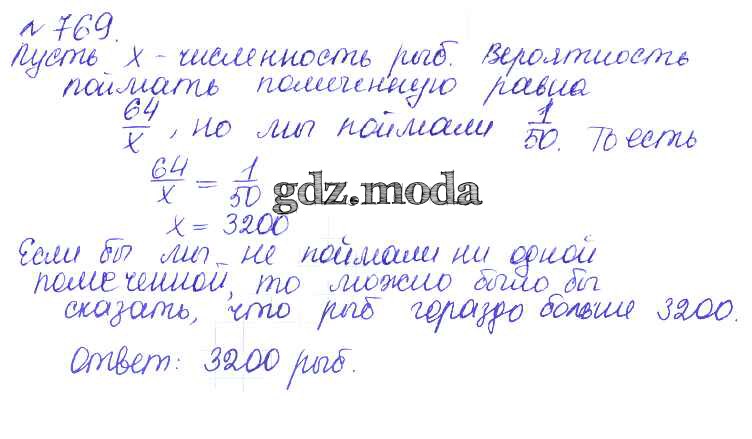 № 769.
Пусть x - численность рыб. Вероятность
поймать помеченную равна
64/x, но мы поймали 1/50. То есть
64/x = 1/50
gdz.moda
x = 3200
Если бы мы не поймали ни одной
помеченной, то можно было бы
сказать, что рыб гораздо больше 3200.
Ответ: 3200 рыб.